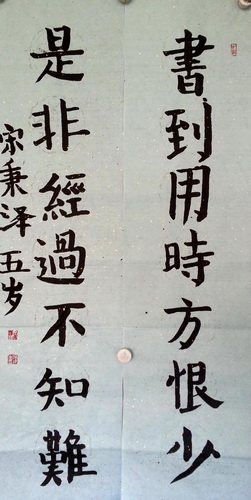 書到用時方恨少
是非經過不知難
宗秉泽五岁